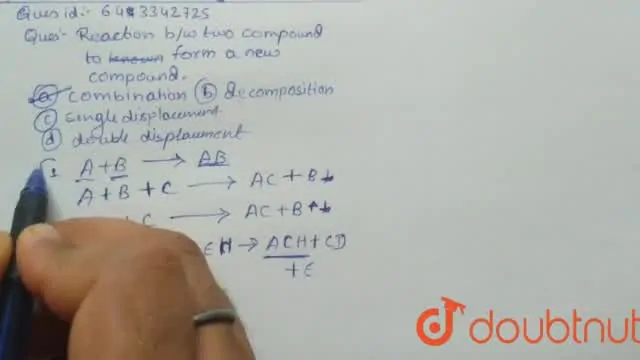 Ques id:- 6483342725
Ques:- Reaction b/w two compound
to form a new
compound.
(a) combination (b) decomposition
(c) single displacement
(d) double displacement
A + B → AB
A + B + C → AC + B↓
+ C → AC + B
EH → ACH + CD
+ E
doubtnut